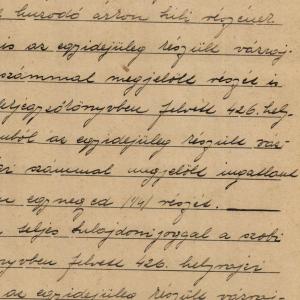 huzódó árkon túli részének
is az egyidejüleg készült vázraj-
számmal megjelölt részét is
telekjegyzőkönyvben felvett 426. hely-
ból az egyidejüleg készült váz-
számmal megjelölt ingatlant
egynegyed /1/4/ részét.
teljes tulajdonjoggal a szobi
felvett 426. helyrajzi
az egyidejüleg készült vázraj-